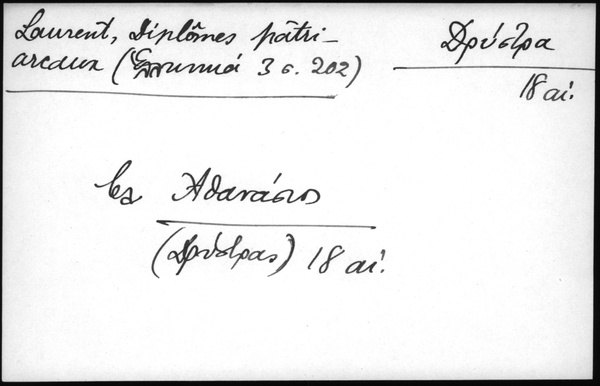 Laurent, Diplômes patri-
arcaux (Ἑλληνικά 3 σ. 202)
Δρύστρα
18 αἰ.
Ἀθανάσιος
(Δρύστρας) 18 αἰ.